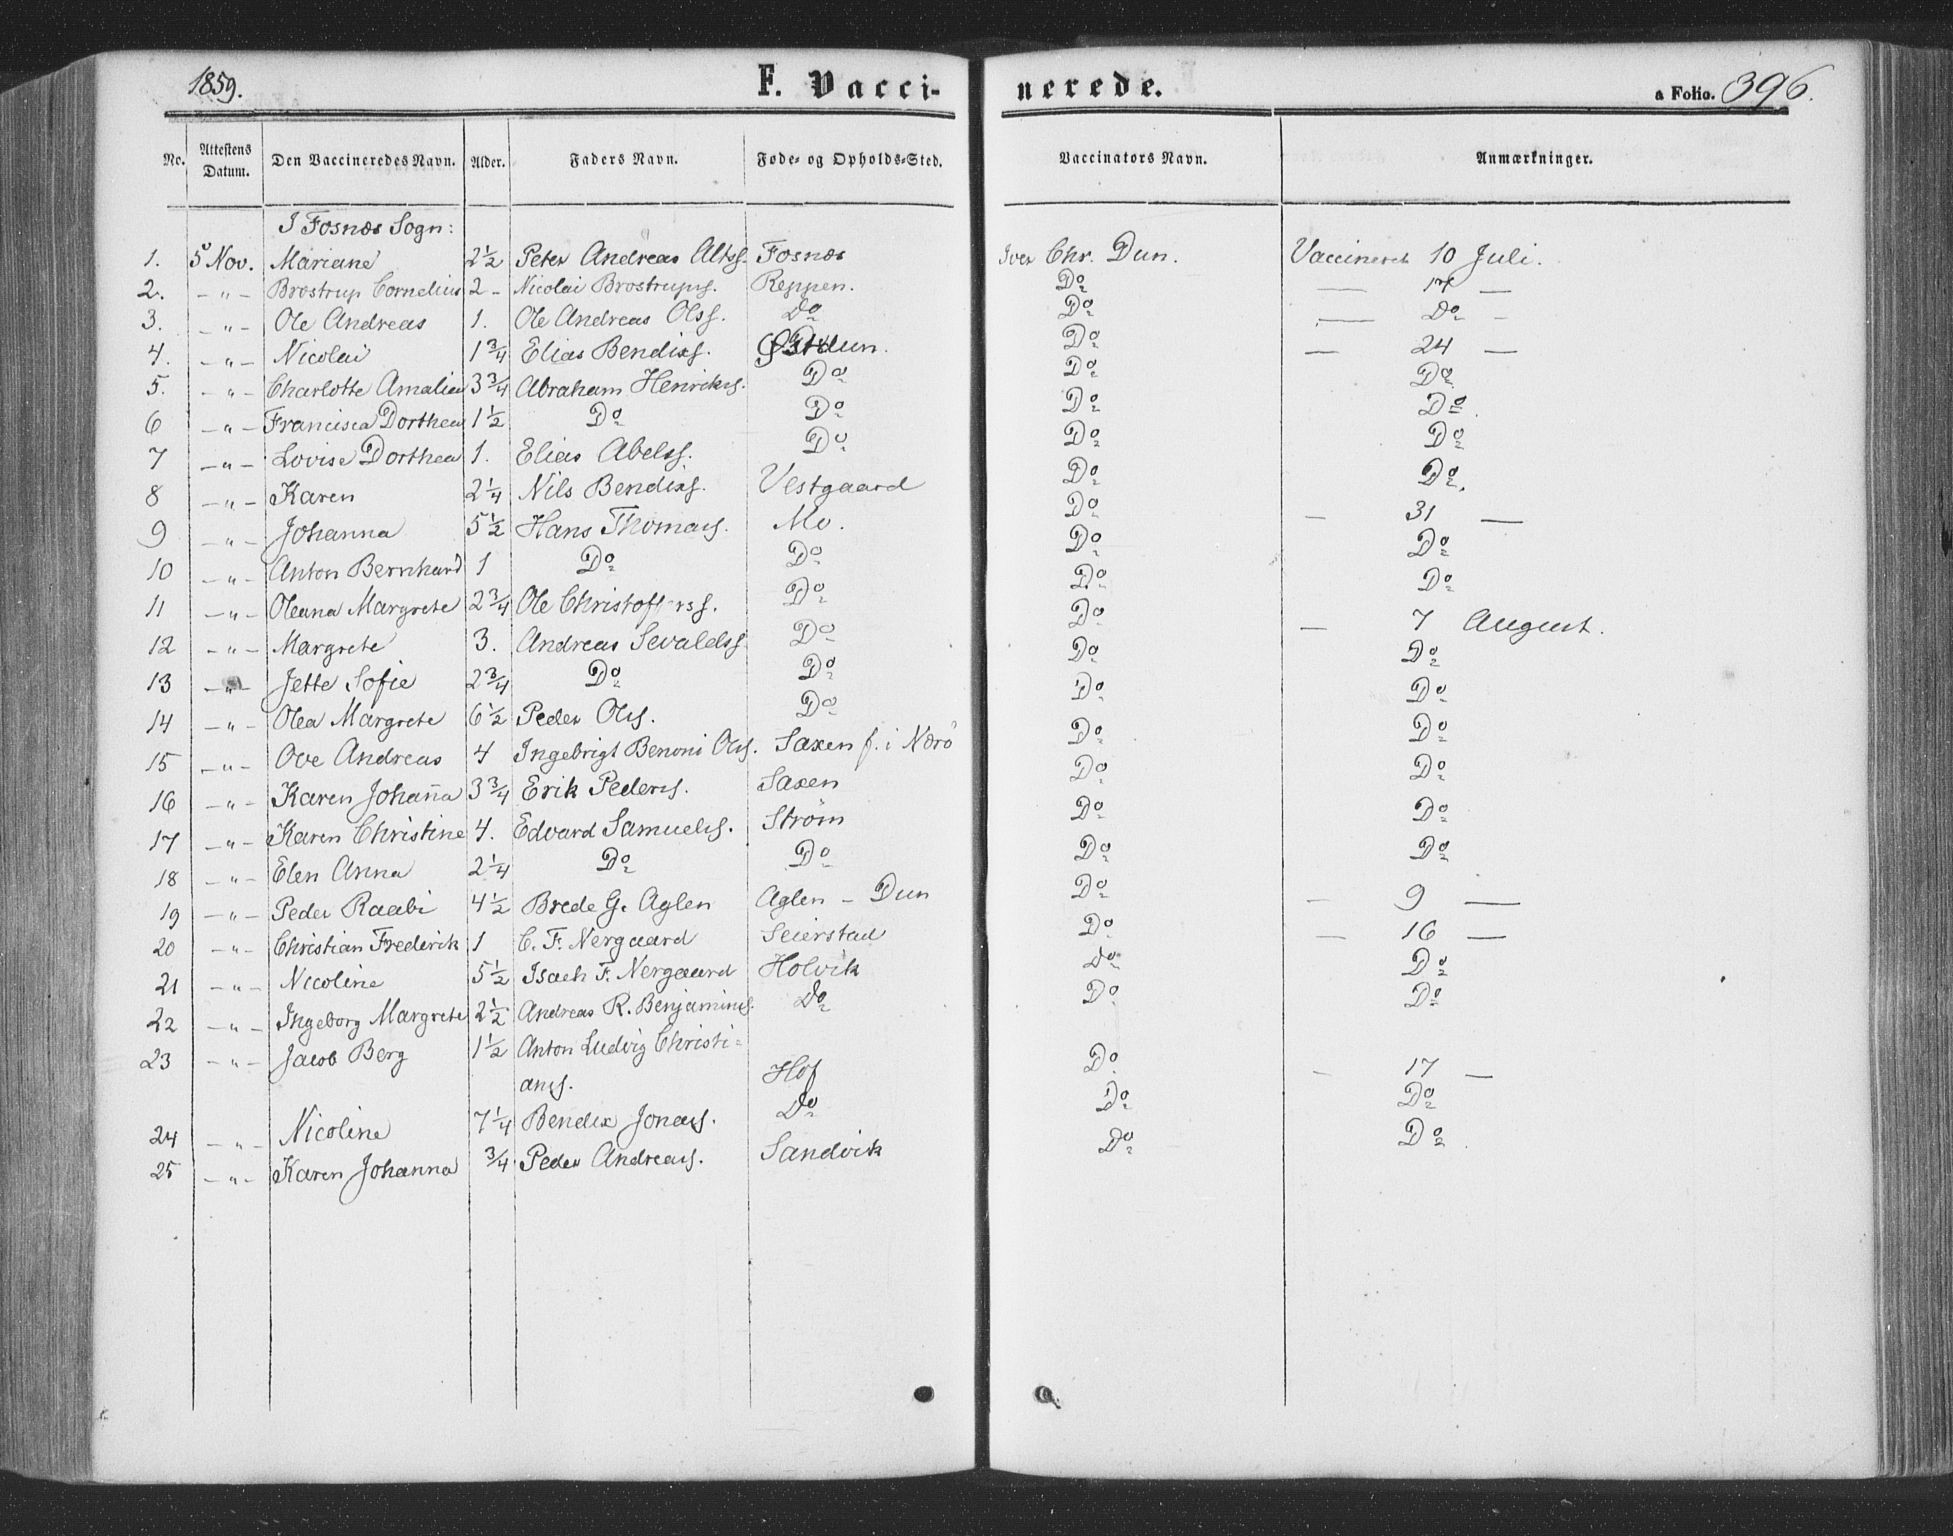 1859. F. Vacci- nerede. a Folio. 396.
No. Attestens Datum. Den Vaccineredes Navn. Alder. Faders Navn. Føde- og Opholds-Sted. Vaccinators Navn. Anmærkninger.
I Fosnæs Sogn:
1. 5 Nov. Mariane 2½ Peter Andreas Altss. Fosnæs Iver Chr. Dun. Vaccineret 10 Juli.
2. -„- Brostrup Cornelius 2- Nicolai Brostrups. Reppen. Do — 17 —
3. -„- Ole Andreas 1. Ole Andreas Olss. Do Do — Do -
4. -„- Nicolai 1¾ Elias Bendixs. Dun. Do — 24 —
5. -„- Charlotte Amalia 3¾ Abraham Henriks. Do Do Do
6 -„- Francisca Dorthea 1½ Do Do Do Do.
7 -„- Lovise Dorthea 1. Elias Abelss. Do Do Do
8 -„- Karen 2¼ Nils Bendixs. Vestgaard Do Do.
9 -„- Johanna 5½ Hans Thomass. Mo. Do — 31 —
10 -„- Anton Bernhard 1 Do Do Do Do
11 -„- Oleana Margrete 2¾ Ole Christofferss. Do Do Do
12 -„- Margrete 3. Andreas Sevaldss. Do Do — 7 August.
13 -„- Jette Sofie 2¾ Do Do Do Do
14 -„- Olea Margrete 6½ Peder Olss. Do Do Do
15 -„- Ove Andreas 4 Ingebrigt Benoni Olss. Saxen f. i Nærö Do Do
16 -„- Karen Johan̄a 3¾ Erik Peders. Saxen Do Do
17 -„- Karen Christine 4. Edvard Samuels. Strøm Do Do
18 -„- Elen Anna 2¼ Do Do Do Do
19 -„- Peder Raabi 4½ Brede G. Aglen Aglen - Dun Do — 9 —
20 -„- Christian Frederik 1 C. F. Nergaard Seierstad Do — 16 —
21 -„- Nicoline 5½ Isach F. Nergaard Holvik Do Do
22 -„- Ingeborg Margrete 2½ Andreas R. Benjamins. Do Do Do
23 -„- Jacob Berg 1½ Anton Ludvig Christi-
ans. Hof Do — 17 —
24 -„- Nicoline 7¼ Bendix Jonass. Do Do Do
25 -„- Karen Johanna ¾ Peder Andreass. Sandvik Do Do